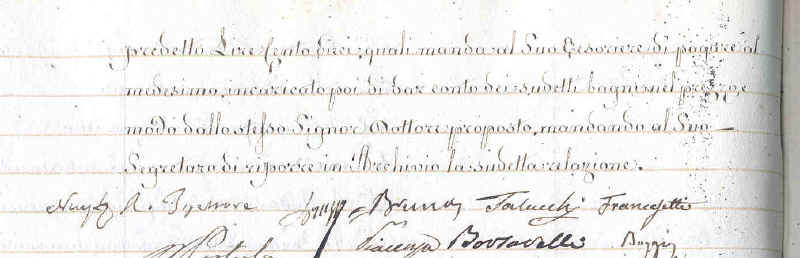 predetto Lire Cento dieci, quali manda al Suo Tesoriere di pagare al
medesimo, incaricato poi di dar conto dei sudetti bagni nel prezzo, e
modo dallo stesso Signor Dottore proposto, mandando al Suo
Segretaro di riporre in Archivio la sudetta relazione.
Bruno Talucchi Franceschetti
Piacenza Borsarelli